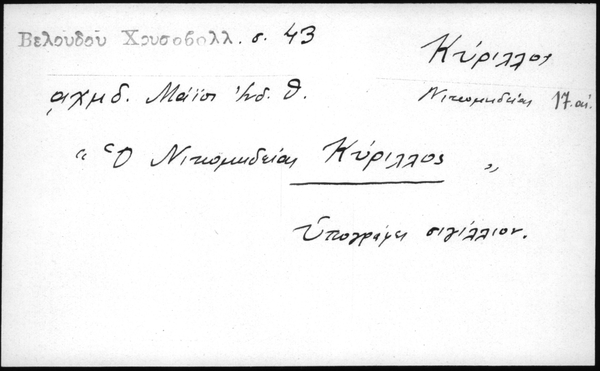 Βελούδου Χρυσοβολλ. σ. 43
Κύριλλος
Νικομηδείας 17. αἰ.
͵αχμδ. Μάϊσι Ἰνδ. θ.
“ Ὁ Νικομηδείας Κύριλλος „
Ὑπογράφει σιγίλλιον.